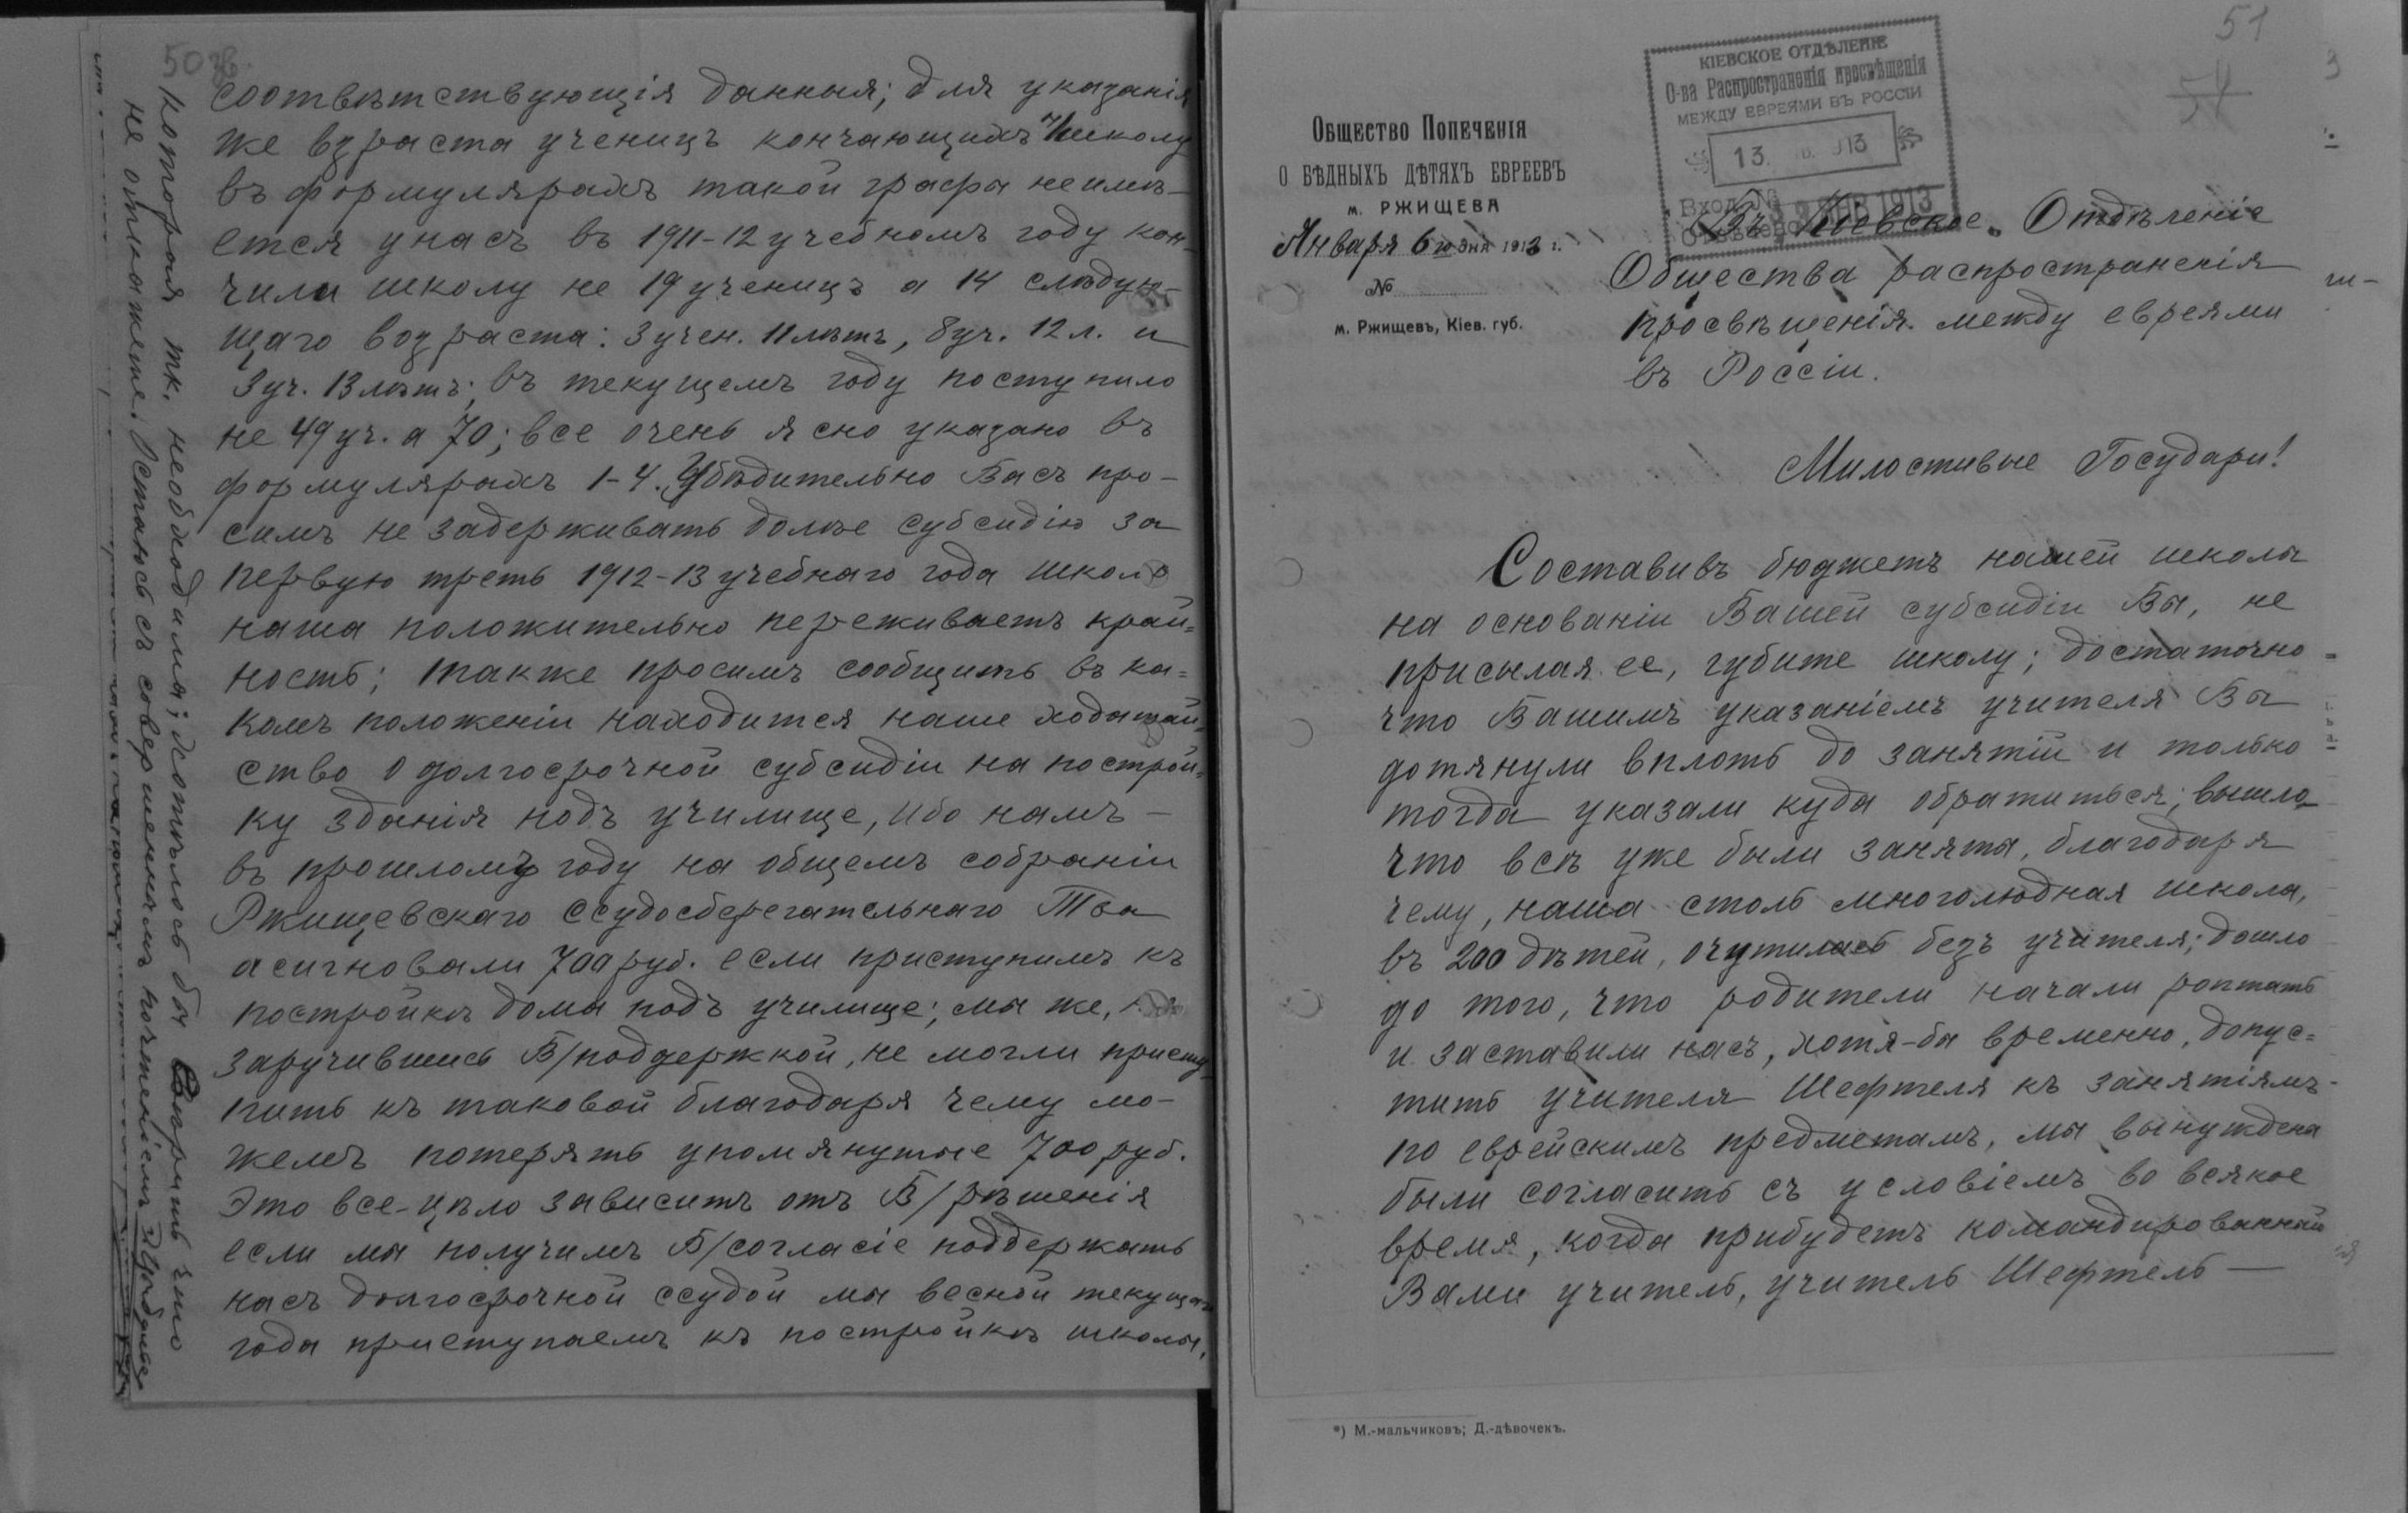 50 об.
соотвѣтствующія данныя; для указанія
же взраста ученицъ кончающихъ школу
въ формулярахъ такой графы не имѣ-
ется у насъ въ 1911-12 учебномъ году кон-
чили школу не 19 ученицъ а 14 слѣдую-
щаго возраста: 3 учен. 11 лѣтъ, 8 уч. 12 л. и
3 уч. 13 лѣтъ; въ текущемъ году поступило
не 49 уч. а 70; все очень ясно указано въ
формулярахъ 1-4. Убѣдительно Васъ про-
симъ не задерживать долѣе субсидію за
первую треть 1912-13 учебнаго года школа
наша положительно переживаетъ край=
ность; также просимъ сообщить въ ка=
комъ положеніи находится наше ходатай=
ство о долгосрочной субсидіи на построй=
ку зданія подъ училище, ибо намъ -
въ прошломъ году на общемъ собраніи
Ржищевскаго ссудосберегательнаго Тва
асигновали 700 руб. если приступимъ къ
постройкѣ дома подъ училище; мы же, не
заручившись В/поддержкой, не могли присту-
пить къ таковой благодаря чему мо-
жемъ потерять упомянутые 700 руб.
Это все-цѣло зависитъ отъ В/рѣшенія
если мы получимъ В/согласіе поддержать
насъ долгосрочной ссудой мы весной текущаго
года приступаемъ къ постройкѣ школы,
которая тк. необходима; хотѣлось бы вѣрить что
не откажете. Остаюсь съ совершеннымъ почтеніемъ
51
КІЕВСКОЕ ОТДѢЛЕНІЕ
О-ва Распространенія просвѣщенія
МЕЖДУ ЕВРЕЯМИ ВЪ РОССІИ
13. 913
Вход. №
ОБЩЕСТВО ПОПЕЧЕНІЯ
О БѢДНЫХЪ ДѢТЯХЪ ЕВРЕЕВЪ
м. РЖИЩЕВА
Января 6го дня 1913 г.
№
м. Ржищевъ, Кіев. губ.
Въ Кіевское Отдѣленіе
Общества распространенія
просвѣщенія между евреями
въ Россіи.
Милостивые Государи!
Составивъ бюджетъ нашей школы
на основаніи Вашей субсидіи Вы, не
присылая ее, губите школу; достаточно
что Вашимъ указаніемъ учителя Вы
дотянули вплоть до занятій и только
тогда указали куда обратиться; вышло
что всѣ уже были заняты, благодаря
чему, наша столь многолюдная школа,
въ 200 дѣтей, очутилась безъ учителя; дошло
до того, что родители начали роптать
и заставили насъ, хотя-бы временно, допус=
тить учителя Шефтеля къ занятіямъ-
по еврейскимъ предметамъ, мы вынуждены
были согласить съ условіемъ во всякое
время, когда прибудетъ командированный
Вами учитель, учитель Шефтель —
*) М.-мальчиковъ; Д.-дѣвочекъ.